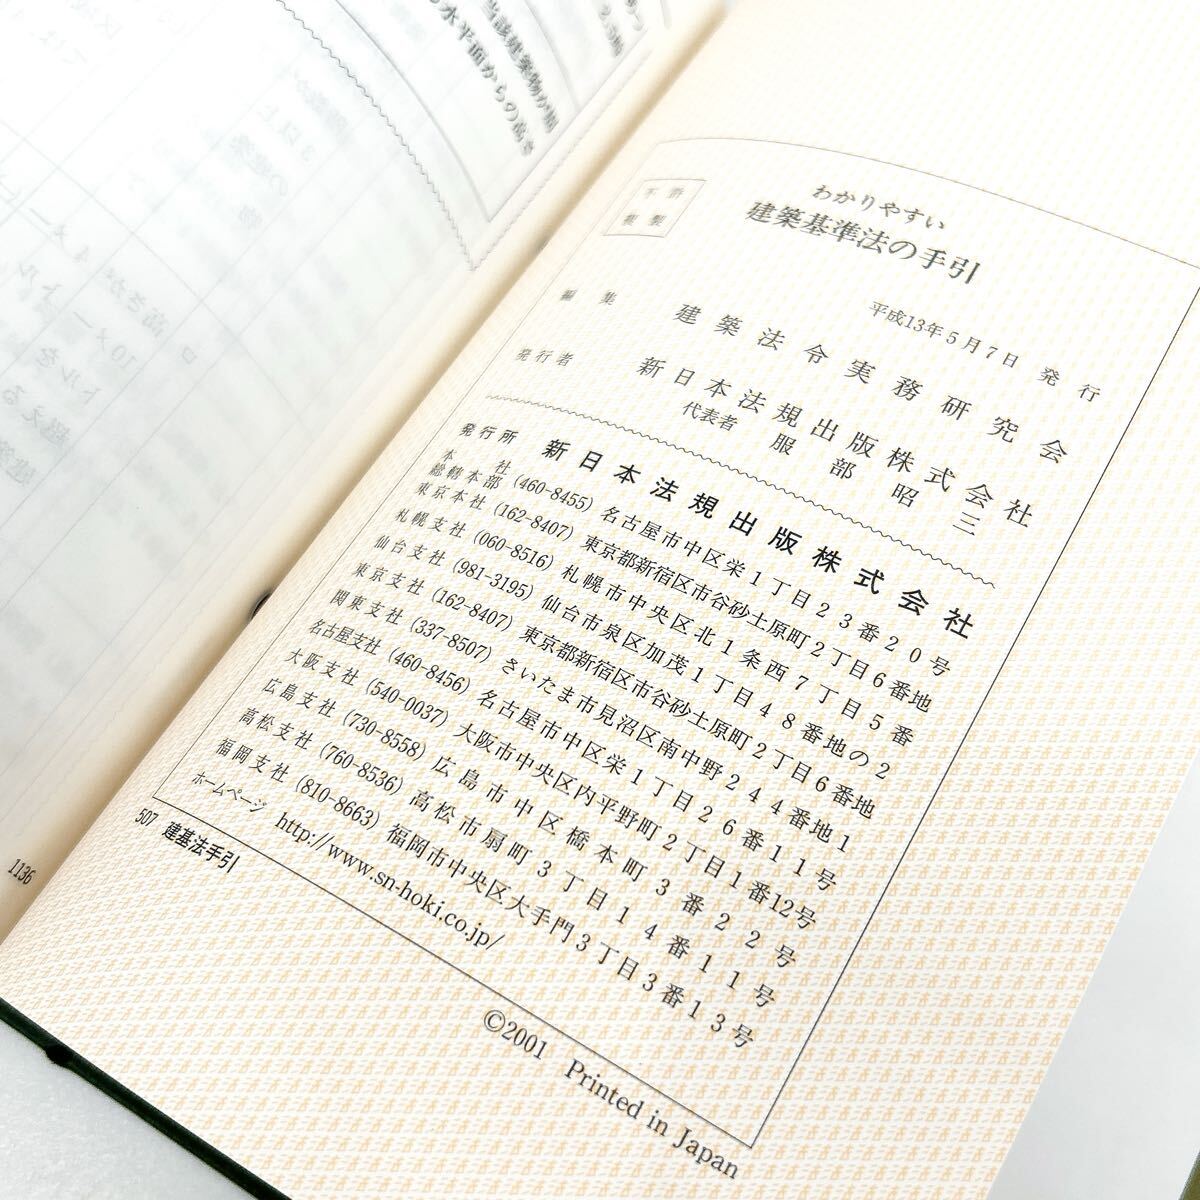 当該建築物が周
水平面からの高さ
1136
不許
複製
わかりやすい
建築基準法の手引
平成13年5月7日 発行
編集 建築法令実務研究会
発行者 新日本法規出版株式会社
代表者 服部昭三
発行所 新日本法規出版株式会社
本社
総轄本部 (460-8455) 名古屋市中区栄1丁目23番20号
東京本社 (162-8407) 東京都新宿区市谷砂土原町2丁目6番地
札幌支社 (060-8516) 札幌市中央区北1条西7丁目5番
仙台支社 (981-3195) 仙台市泉区加茂1丁目48番地の2
東京支社 (162-8407) 東京都新宿区市谷砂土原町2丁目6番地
関東支社 (337-8507) さいたま市見沼区南中野244番地1
名古屋支社 (460-8456) 名古屋市中区栄1丁目26番11号
大阪支社 (540-0037) 大阪市中央区内平野町2丁目1番12号
広島支社 (730-8558) 広島市中区橋本町3番22号
高松支社 (760-8536) 高松市扇町3丁目14番11号
福岡支社 (810-8663) 福岡市中央区大手門3丁目3番13号
ホームページ http://www.sn-hoki.co.jp/
507 建基法手引
©2001 Printed in Japan